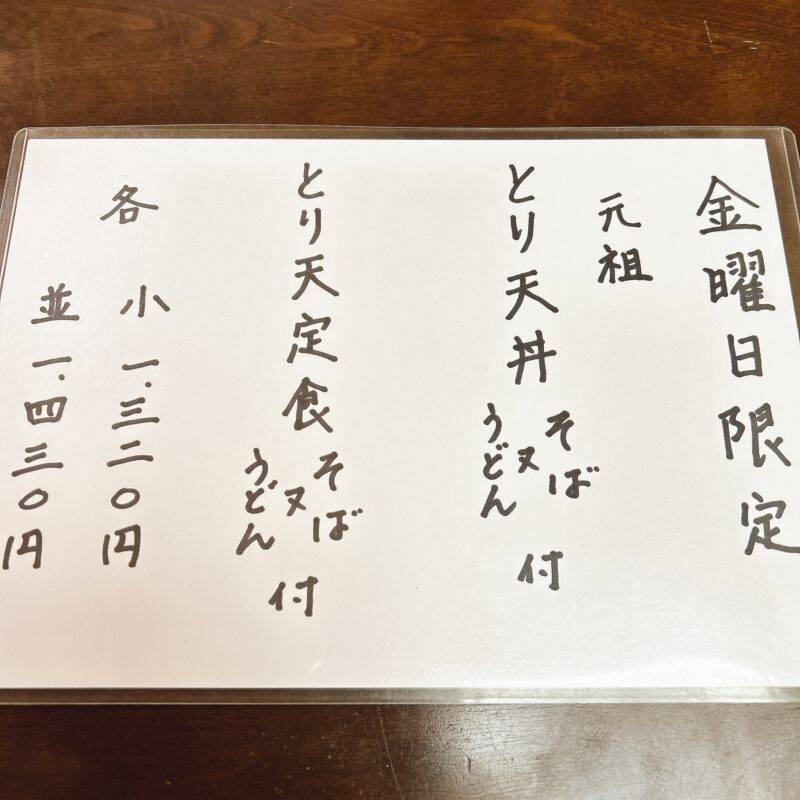 金曜日限定
元祖
とり天丼 そば又うどん 付
とり天定食 そば又うどん 付
各 小 一.三二〇円
並 一.四三〇円